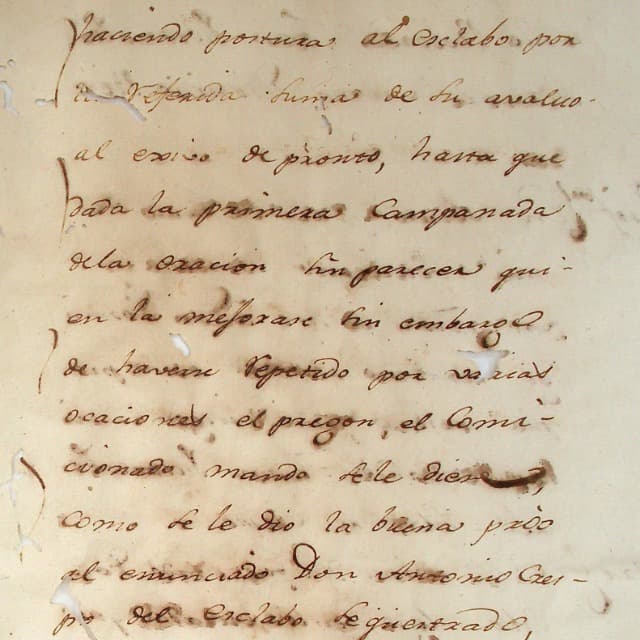 haciendo postura al esclabo por
la referida suma de su avaluo.
al exivo de pronto, hasta que
dada la primera Campanada
dela oracion sin parecer qui-
en la mejorase sin embargo
de haverse repetido por varias
ocaciones el pregon, el Comi-
cionado mando se le diera,
como se le dio la buena pró
al enunciado Don Antonio Cres-
po del esclabo seqüestrado,